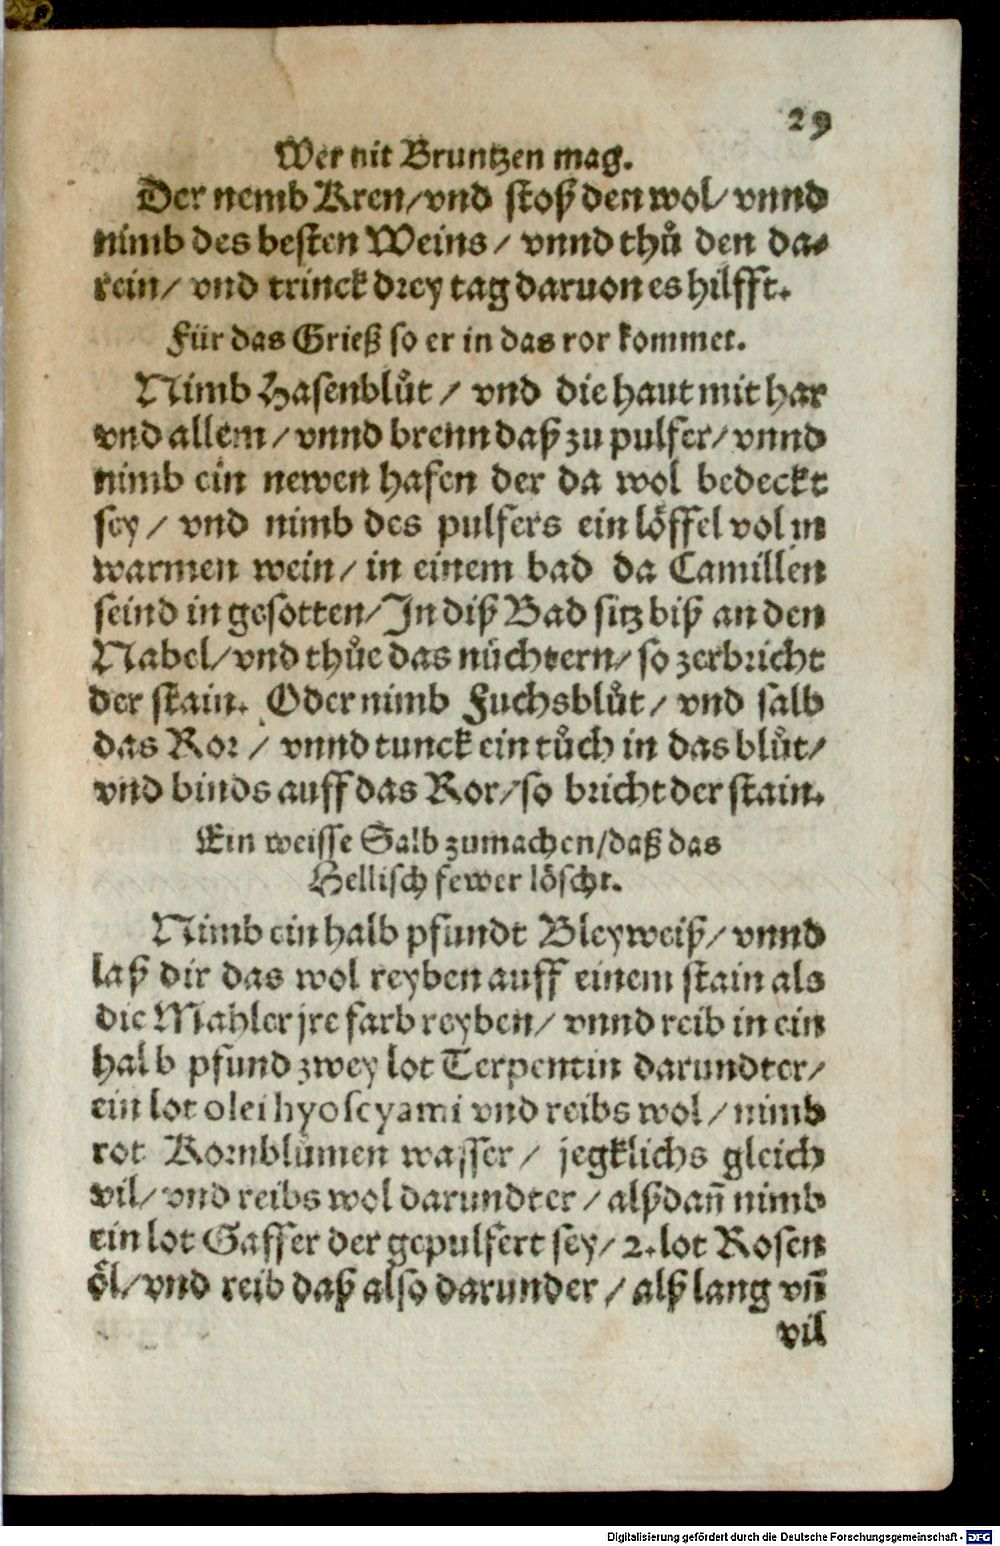 29
Wer nit Bruntzen mag.
Der nemb Kren/vnd stoß den wol/vnnd
nimb des besten Weins/ vnnd thů den da⸗
rein/ vnd trinck drey tag daruon es hilfft.
Für das Grieß so er in das ror kommet.
Nimb Hasenblůt/ vnd die haut mit har
vnd allem/vnnd brenn daß zu pulfer/vnnd
nimb ein newen hafen der da wol bedeckt
sey/ vnd nimb des pulfers ein löffel vol in
warmen wein/in einem bad da Camillen
seind in gesotten/In diß Bad sitz biß an den
Nabel/vnd thůe das nüchtern/so zerbricht
der stain. Oder nimb Fuchsblůt/ vnd salb
das Ror/ vnnd tunck ein tůch in das blůt/
vnd binds auff das Ror/so bricht der stain.
Ein weisse Salb zumachen/daß das
Hellisch fewer löscht.
Nimb ein halb pfundt Bleyweiß/vnnd
laß dir das wol reyben auff einem stain als
die Mahler jre farb reyben/ vnnd reib in ein
halb pfund zwey lot Terpentin darundter/
ein lot olei hyoscyami vnd reibs wol/nimb
rot Kornblůmen wasser/ jegklichs gleich
vil/vnd reibs wol darundter/alßdañ nimb
ein lot Gaffer der gepulfert sey/2.lot Rosen
öl/vnd reib daß also darunder/alß lang vñ
vil
Digitalisierung gefördert durch die Deutsche Forschungsgemeinschaft - DFG